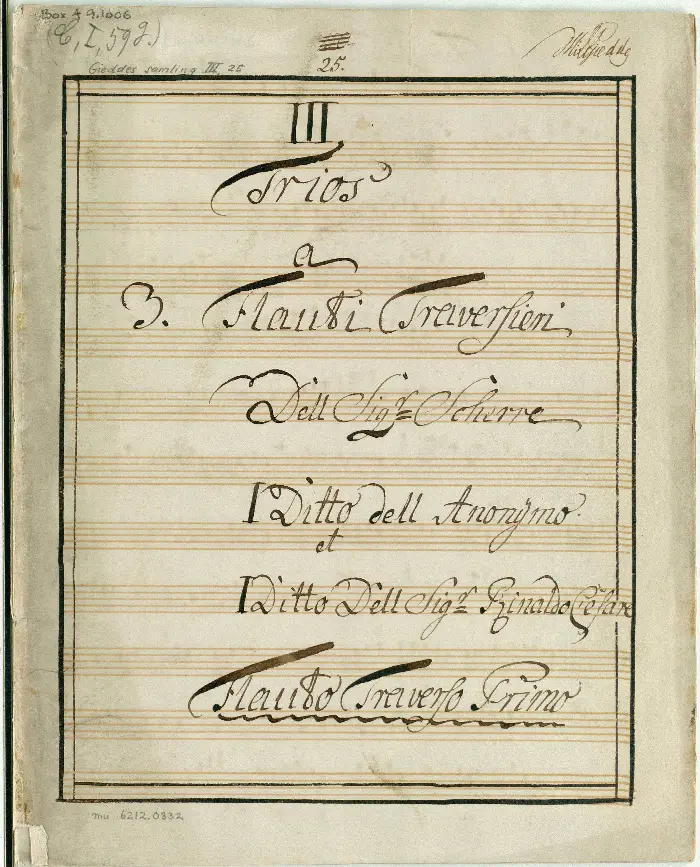 Box A 9.1006
(C, I, 592.)
25.
Gieddes samling III, 25
III
Trios
a
3. Flauti Traversieri
Dell Sigr Scherre
I Ditto dell Anonÿmo.
et
I Ditto Dell Sigr Rinaldo Cesare
Flauto Traverso Primo
mu 6212.0332